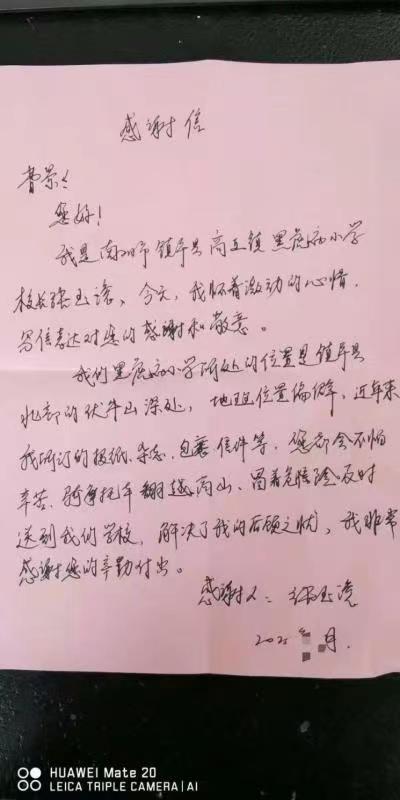 感谢信
曹景:
您好!
我是南阳市镇平县高丘镇黑虎庙小学
校长张玉 、今天,我怀着激动的心情,
写信表达对您的感谢和敬意。
我们黑虎庙小学所处的位置是镇平县
北部的伏牛山深处,地理位置偏僻,近年来
我所订的报纸、杂志、包裹、信件等,您都会不怕
辛苦、骑摩托车翻越高山、冒着危险及时
送到我的学校,解决了我的后顾之忧,我非常
感谢您的辛勤付出。
感谢人:张玉
202 年 月.
HUAWEI Mate 20
LEICA TRIPLE CAMERA | AI